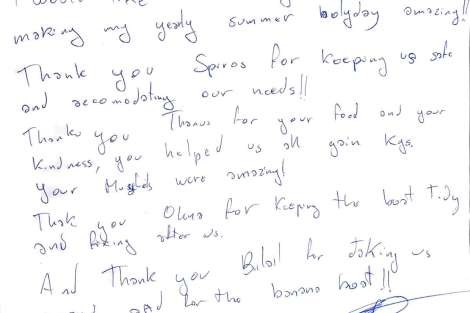 making my yearly summer holyday amazing!!
Thank you Spiros for keeping us safe
and accomodating our needs!!
Thank you Thanos for your food and your
kindness, you helped us all gain kgs.
Your were amazing!
Thank you Olena for keeping the boat tidy
and after us.
And Thank you Bilal for taking us
for the banana boat!!